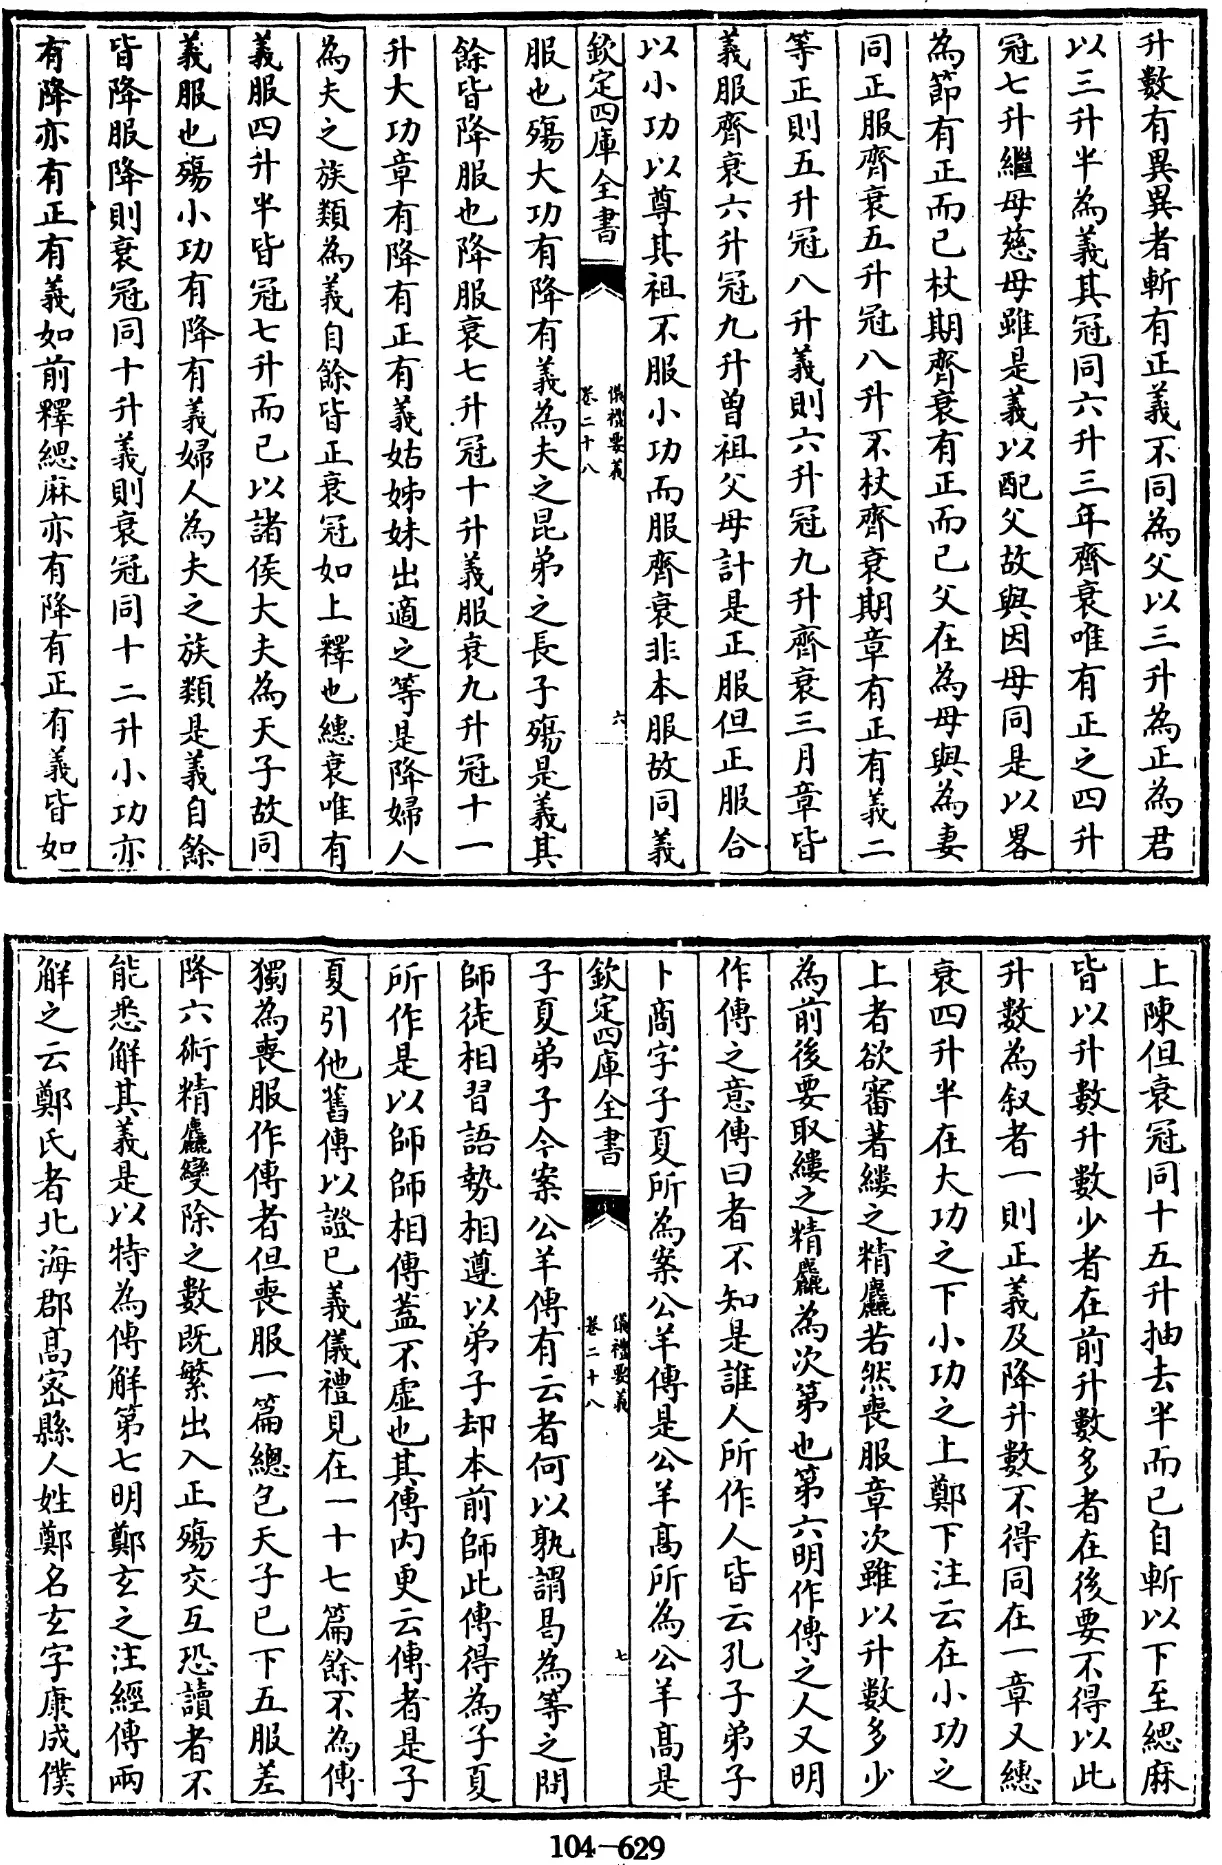 升數有異異者斬有正義不同為父以三升為正為君
以三升半為義其冠同六升三年齊衰唯有正之四升
冠七升繼母慈母雖是義以配父故與因母同是以畧
為節有正而已杖期齊衰有正而已父在為母與為妻
同正服齊衰五升冠八升不杖齊衰期章有正有義二
等正則五升冠八升義則六升冠九升齊衰三月章皆
義服齊衰六升冠九升曽祖父母計是正服但正服合
以小功以尊其祖不服小功而服齊衰非本服故同義
欽定四庫全書
儀禮要義
卷二十八
六
服也殤大功有降有義為夫之昆弟之長子殤是義其
餘皆降服也降服衰七升冠十升義服衰九升冠十一
升大功章有降有正有義姑姊妹出適之等是降婦人
為夫之族類為義自餘皆正衰冠如上釋也繐衰唯有
義服四升半皆冠七升而已以諸侯大夫為天子故同
義服也殤小功有降有義婦人為夫之族類是義自餘
皆降服降則衰冠同十升義則衰冠同十二升小功亦
有降亦有正有義如前釋緦麻亦有降有正有義皆如
上陳但衰冠同十五升抽去半而已自斬以下至緦麻
皆以升數升數少者在前升數多者在後要不得以此
升數為叙者一則正義及降升數不得同在一章又繐
衰四升半在大功之下小功之上鄭下注云在小功之
上者欲審著縷之精麤若然喪服章次雖以升數多少
為前後要取縷之精麤為次第也第六明作傳之人又明
作傳之意傳曰者不知是誰人所作人皆云孔子弟子
卜商字子夏所為案公羊傳是公羊高所為公羊高是
欽定四庫全書
儀禮要義
卷二十八
七
子夏弟子今案公羊傳有云者何以孰謂曷為等之問
師徒相習語勢相遵以弟子却本前師此傳得為子夏
所作是以師師相傳蓋不虛也其傳內更云傳者是子
夏引他舊傳以證已義儀禮見在一十七篇餘不為傳
獨為喪服作傳者但喪服一篇總包天子已下五服差
降六術精麤變除之數既繁出入正殤交互恐讀者不
能悉解其義是以特為傳解第七明鄭玄之注經傳兩
解之云鄭氏者北海郡高密縣人姓鄭名玄字康成僕
104-629